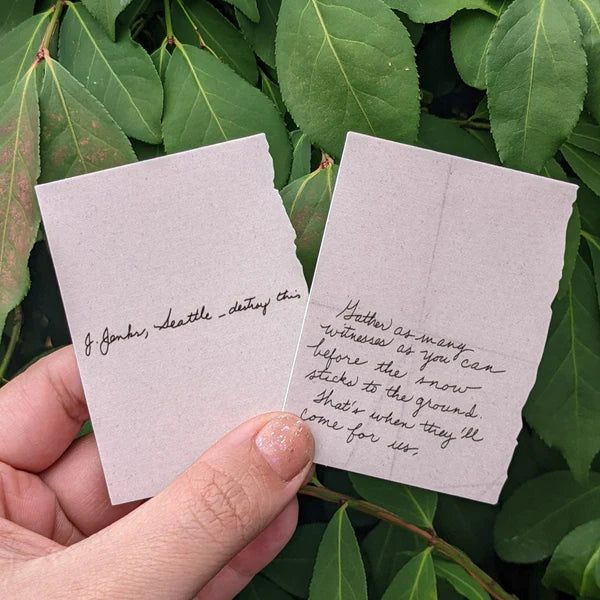 J. Jenks, Seattle - destroy this
Gather as many
witnesses as you can
before the snow
sticks to the ground.
That's when they'll
come for us.